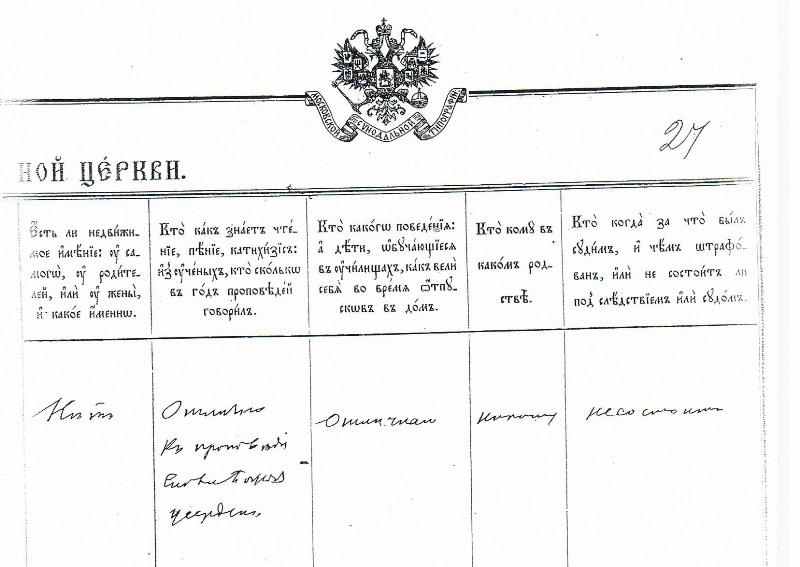 МОСКОВСКОЙ СѴНОДАЛЬНОЙ ТИПОГРАФІИ
27
НОЙ ЦЕ́РКВИ.
Є҆́сть ли недви́жи-
мое и҆мѣ́нїе: ᲂу҆ са-
магѡ̀, ᲂу҆ роди́те-
лей, и҆лѝ ᲂу҆ жены̀,
и҆ какое и҆́меннѡ.
Кто̀ ка́къ зна́етъ чте́-
нїе, пѣ́нїе, катихи́зїсъ:
и҆з̾ ᲂу҆че́ныхъ, кто̀ ско́лькѡ
въ го́дъ проповѣ́дей
говори́лъ.
Кто̀ како́гѡ поведе́нїѧ:
а҆ дѣ́ти, ѡ҆буча́ющїесѧ
въ ᲂу҆чи́лищахъ, ка́къ велѝ
себѧ̀ во вре́мѧ ѿпꙋ-
скѡвъ въ до́мъ.
Кто̀ комꙋ̀ въ
како́мъ род-
ствѣ̀.
Кто̀ когда̀ за что̀ бы́лъ
сꙋди́мъ, и҆ чѣ́мъ штрафо́-
ванъ, и҆лѝ не состои́тъ ли
под̾ слѣ́дствїемъ и҆лѝ сꙋдо́мъ.
Нѣтъ
Отлично
Къ проповѣди
Слова Божія
усерденъ
Отличнаго
никому
не состоитъ